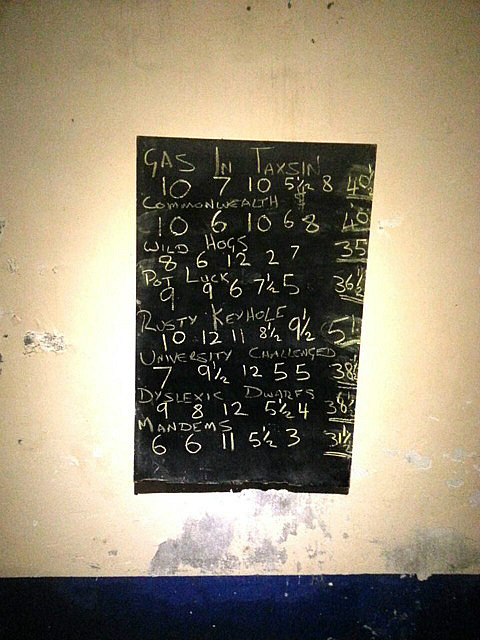 GAS IN TAXSIN
10 7 10 5½ 8 40½
COMMONWEALTH
10 6 10 6 8 40
WILD HOGS
8 6 12 2 7 35
POT LUCK
9 9 6 7½ 5 36½
RUSTY KEYHOLE
10 12 11 8½ 9½ 51
UNIVERSITY CHALLENGED
7 9½ 12 5 5 38½
DYSLEXIC DWARFS
9 8 12 5½ 4 38½
MANDEMS
6 6 11 5½ 3 31½